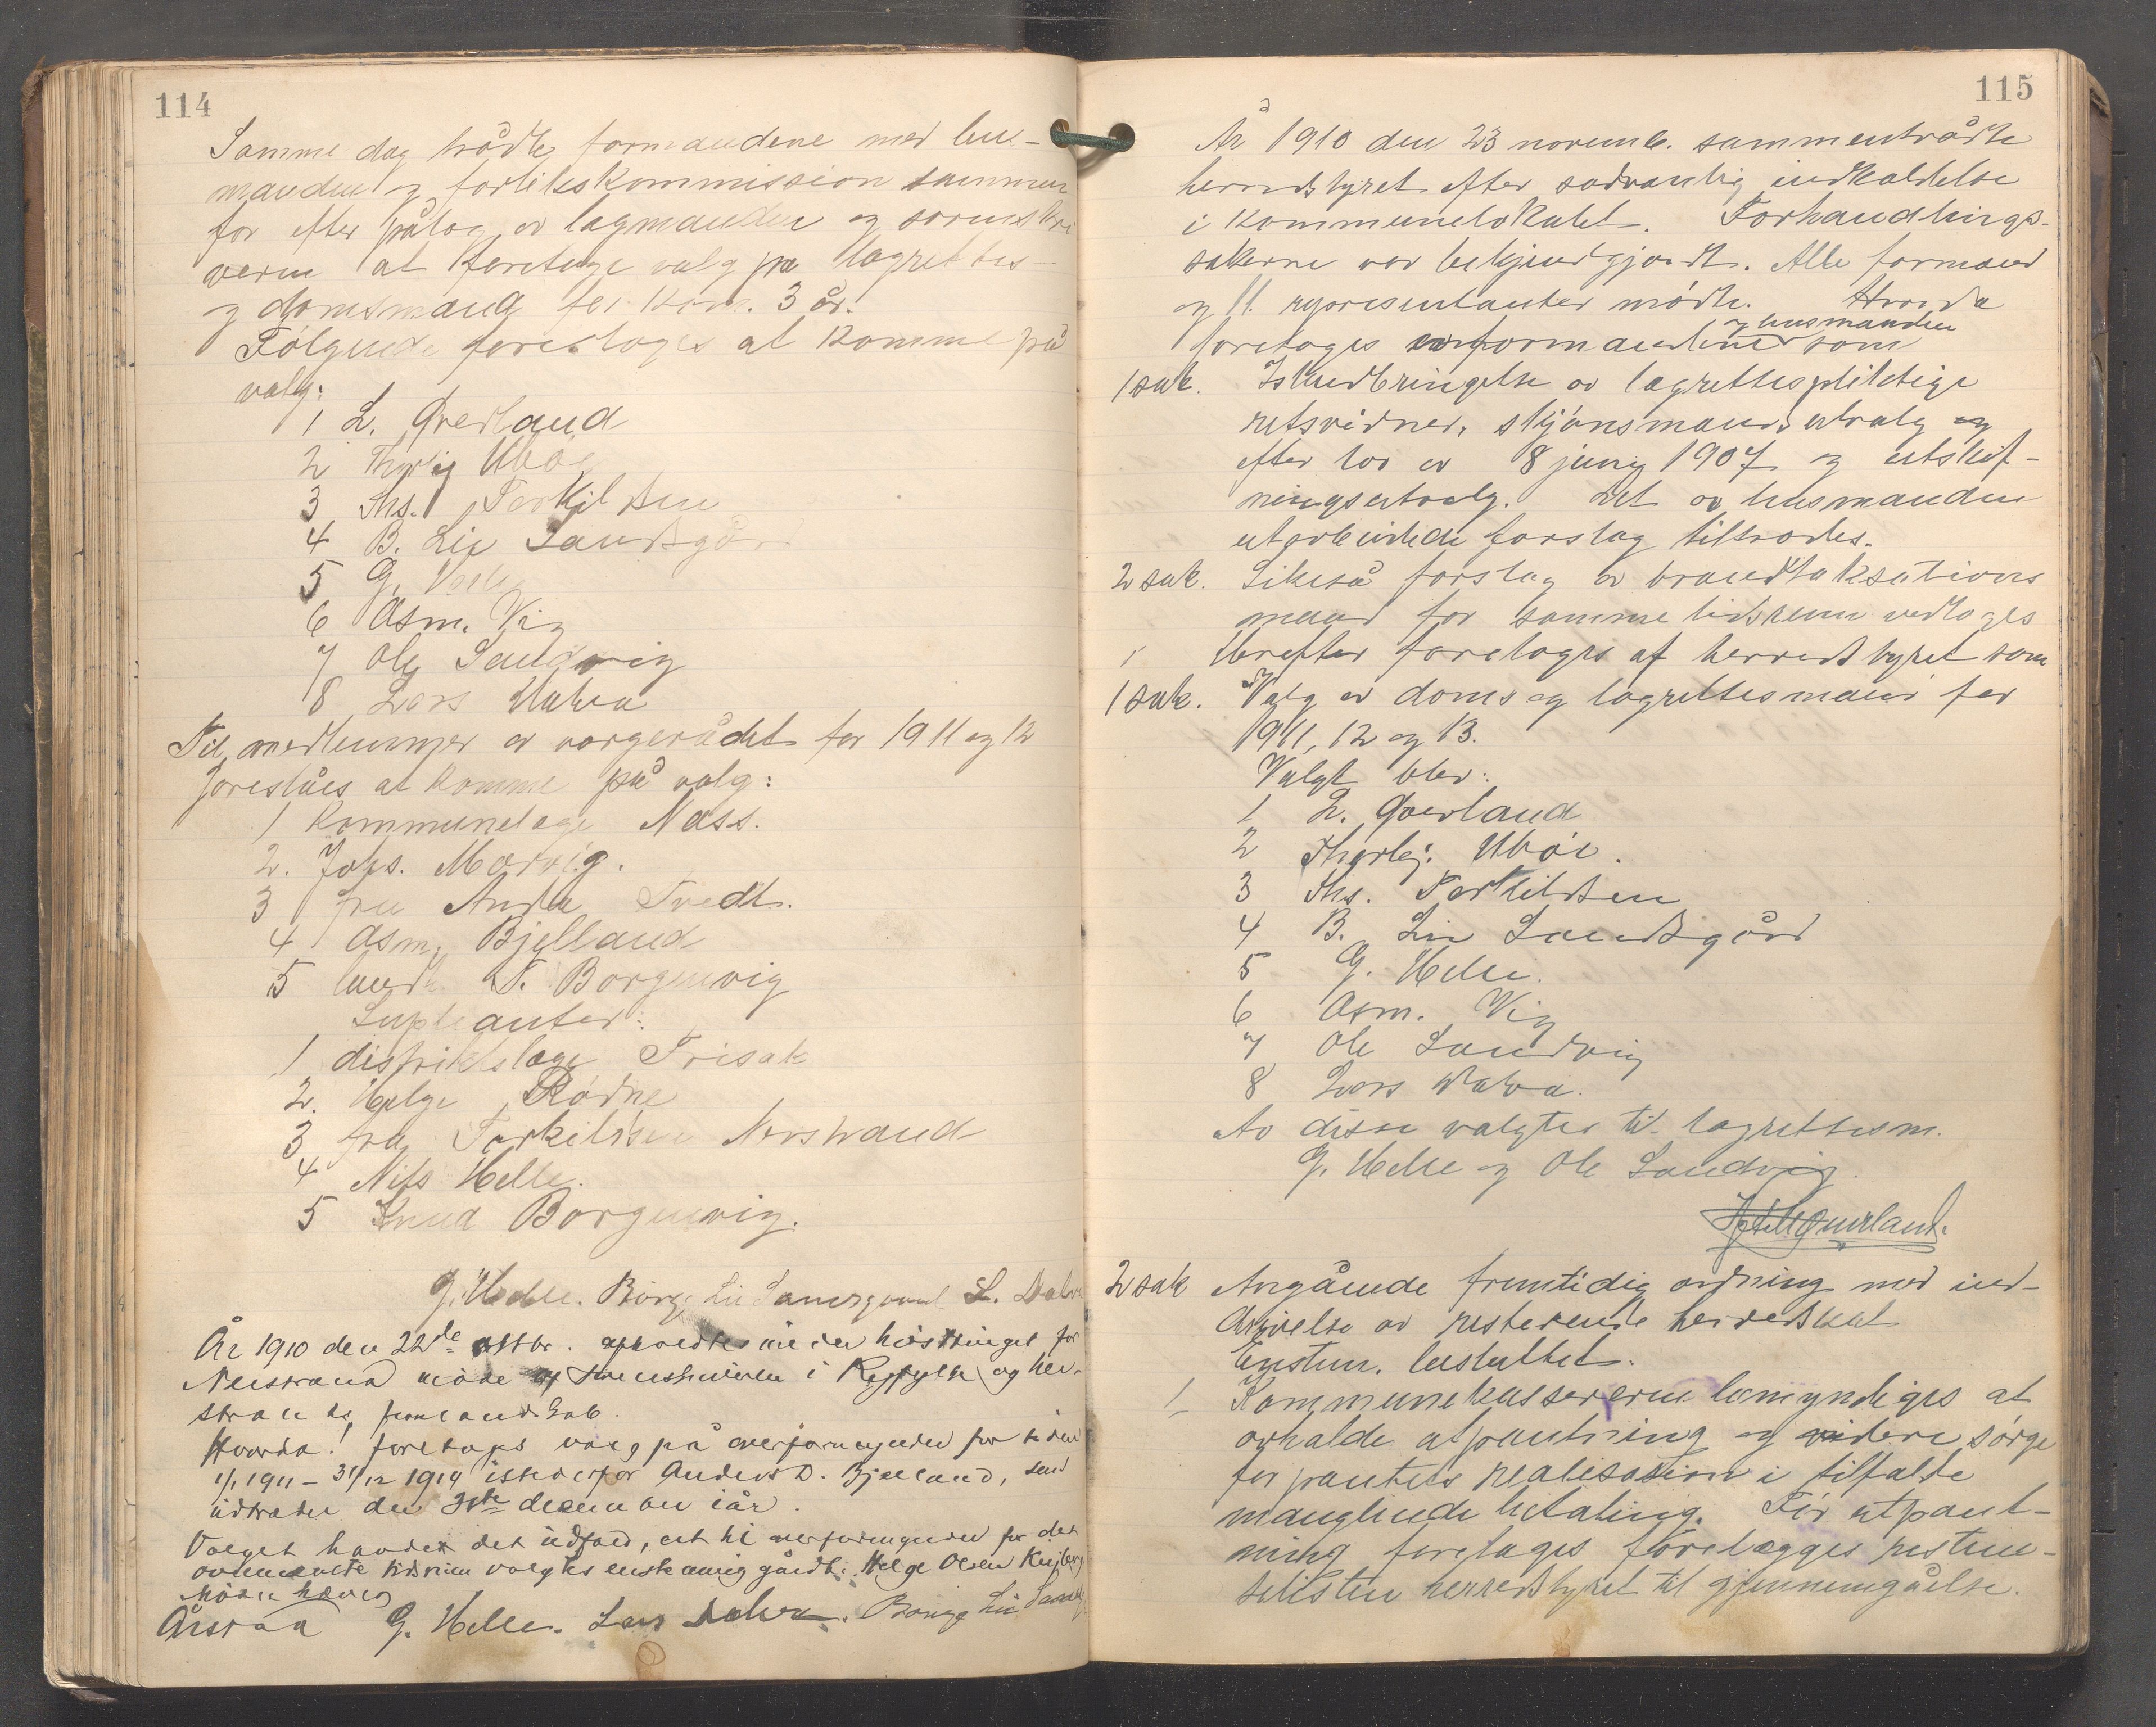 114
Samme dag trådte formandene med lens-
manden og forlikskommission sammen
for efter pålæg av lagmanden og sorenskri
veren at foretage valg på lagrettes-
og domsmænd for kom. 3 år.
Følgende foresloges at komme på
valg:
1 L. Qverland
2 Thorleif Ubøe
3 Ths. Torkildsen
4 B. Lie Sandsgård
5 G. Helle
6 Asm. Vig
7 Ole Sandvig
8 Lars Dalva
Til medlemmer av vergerådet for 1911 og 12
foreslåes at komme på valg:
1 Kommunelæge Næss.
2. Johs. Mærvig.
3 fru Anda Tvedt.
4 Asm. Bjelland
5 landh. T. Borgenvig
Supleanter:
1 distriktslæge Frisak
2. Helge Rødne
3 fru Torkildsen Nerstrand
4 Nils Helle.
5 Knud Borgenvig.
G. Helle. Børge Lie Sandsgaard L. Dalva
År 1910 den 22de oktbr. under høsttinget for
Nerstrand møde af sorenskriveren i Ryfylke og Ner-
strands formandskab.
Hvorda! foretoges valg på overformynder for tiden
1/1 1911 – 31/12 1914 istedetfor Anders D. Bjelland, som
udtræder den 31te december iår.
Valget havde det udfald, at til overformynder for det
ovennævnte tidsrum valgtes enstemmig gårdb. Helge Olsen
Mødet hævet
G. Helle. Lars Dalva. Børge Lie Sandsg
115
År 1910 den 23 novemb. sammentrådte
herredstyret efter sedvanlig indkaldelse
i kommunelokalet. Forhandlings-
sakerne var bekjendtgjordt. Alle formænd
og 11 representanter mødte. Hvorda
og lensmanden
foretoges av formandene som
1 sak. Istandbringelse av lagrettespliktige
retsvidner, skjønsmandsutvalg og
efter lov av 8 juny 1907 og utskif-
ningsutvalg. Det av lensmanden
utarbeidede forslag tiltrådes.
2 sak. Likeså forslag av brandtaksations
mænd for samme tidsrum vedtoges
Herefter foretoges af herredstyret som
1 sak. Valg av doms og lagrettesmænd for
1911, 12 og 13.
Valgt blev:
1 L. Qverland
2 Thorleif Ubøe.
3 Ths. Torkildsen
4 B. Lie Sandsgård
5 G. Helle.
6 Asm. Vig
7 Ole Sandvig
8 Lars Dalva.
Av disse valgtes til lagrettesm.
G. Helle og Ole Sandvig.
2 sak Angående fremtidig ordning med ind-
drivelse av resterende herredskat
Enstem. besluttet:
1 Kommunekassereren bemyndiges at
avhalde utpantning og videre sørge
for pantets realisasion i tilfælde
manglende betaling. Før utpant-
ning foretages forelægges restan-
selisten herredstyret til gjennemgåelse.